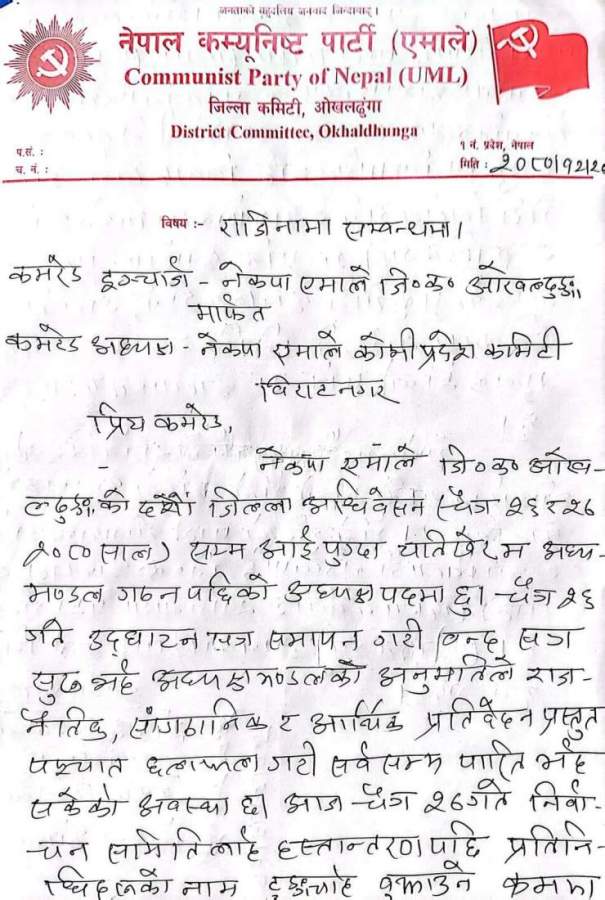 जनताको बहुदलीय जनवाद जिन्दावाद्।
नेपाल कम्युनिष्ट पार्टी (एमाले)
Communist Party of Nepal (UML)
जिल्ला कमिटी, ओखलढुंगा
District Committee, Okhaldhunga
प.सं. :
च. नं. :
१ नं. प्रदेश, नेपाल
मिति : २०८०/१२/२
विषय :- राजिनामा सम्बन्धमा।
कमरेड इन्चार्ज - नेकपा एमाले जि०क०
मार्फत
कमरेड अध्यक्ष - नेकपा एमाले कोशी प्रदेश कमिटी
विराटनगर
प्रिय कमरेड,
नेकपा एमाले जि०क० ओख-
को दशौं जिल्ला अधिवेसन (चैत्र २६ र २७
२०८० साल) सम्म आई पुग्दा यतिखेर म अध्य-
मण्डल गठन पछिको अध्यक्ष पदमा छु। चैत्र २६
गते उद्घाटन सत्र समापन गरी बन्द सत्र
सुरु भई अध्यक्षमण्डलको अनुमतिले राज-
नैतिक, सांगठानिक र आर्थिक प्रतिवेदन प्रस्तुत
पश्चात छलफल गरी सर्वसम्म पारित भई
सकेको अवस्था छ। आज चैत्र २७ गते निर्वा-
चन समितिलाई हस्तान्तरण पछि प्रतिनि-
को नाम बुझाउने क्रममा